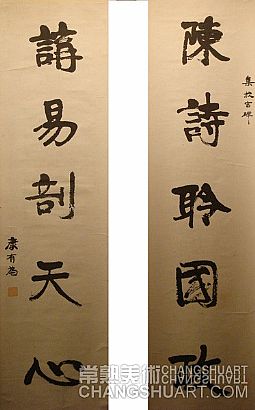 集校官碑
陳詩聆國政
講易剖天心
康有為
常熟美術 CHANGSHUART
CHANGSHUART.COM